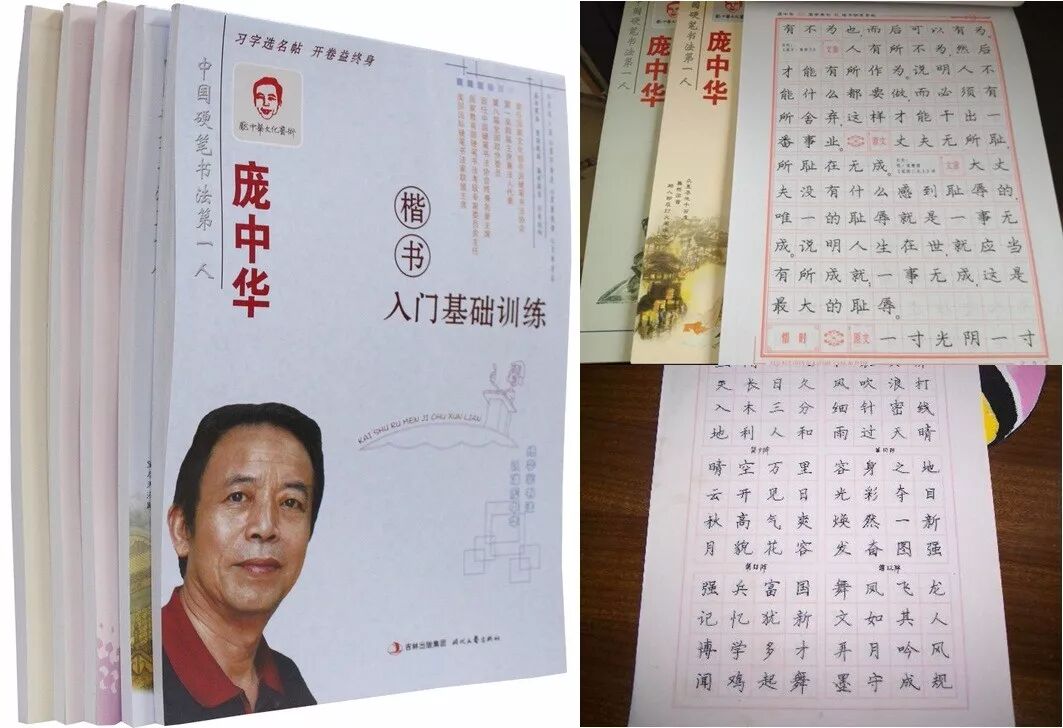 习字选名帖 开卷益终身
中国硬笔书法第一人
龐中華文化藝術
庞中华
楷书
入门基础训练
KAI SHU RU MEN JI CHU XUN LIAN
吉林出版集团 时代文艺出版社
中国硬笔书法第一人
庞中华
庞中华
有不为也,而后可以有为。
文意 人有所不为,然后
才能有所作为。说明人不
能什么都要做,而必须有
所舍弃,这样才能干出一
番事业。 原文 丈夫无所耻,
所耻在无成。 文意 大丈
夫没有什么感到耻辱的,
唯一的耻辱就是一事无
成。说明人生在世,就应当
有所成就,一事无成,这是
最大的耻辱。
惜时 原文 一寸光阴一寸
天长日久 风吹浪打
入木三分 细针密线
地利人和 雨过天晴
晴空万里 容身之地
云开见日 光彩夺目
秋高气爽 焕然一新
月貌花容 发奋图强
强兵富国 舞凤飞龙
记忆犹新 文如其人
博学多才 弄月吟风
闻鸡起舞 墨守成规